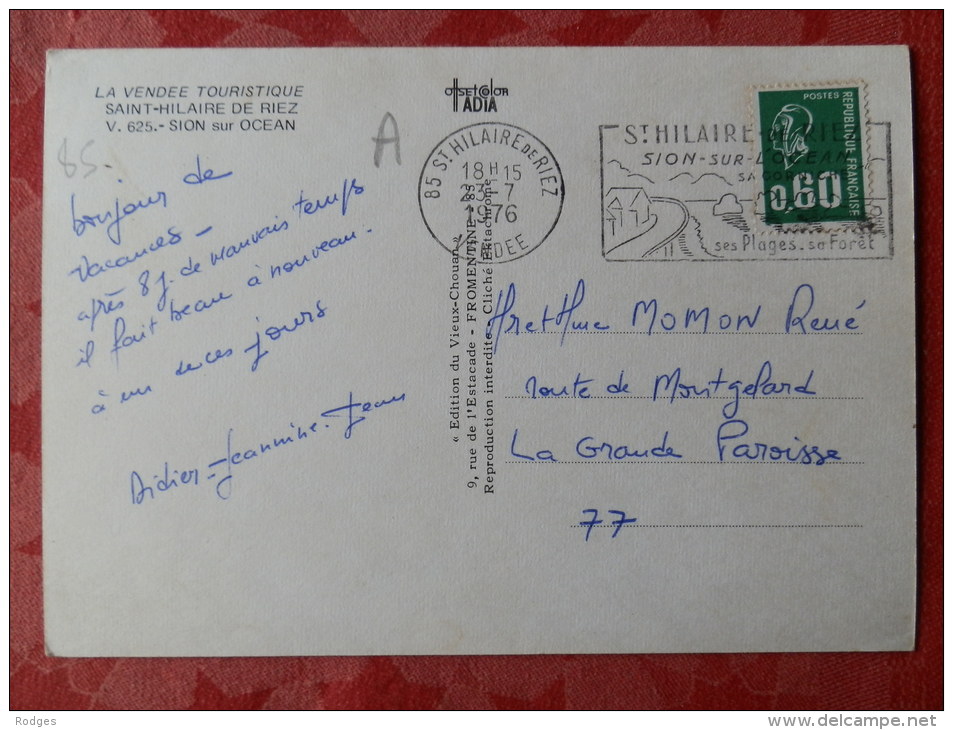 LA VENDEE TOURISTIQUE
SAINT-HILAIRE DE RIEZ
V. 625.- SION sur OCEAN
85-
A
OFFSETCOLOR
IADIA
bonjour de
vacances -
après 8 j. de mauvais temps
il fait beau à nouveau.
à un de ces jours
Didier - Jeannine. Jean
« Edition du Vieux-Chouan »
9, rue de l'Estacade - FROMENTINE - 85
Reproduction interdite - Cliché Estachrome
85 ST HILAIRE DE RIEZ
18H15
23-7
1976
VENDEE
ST HILAIRE-DE RIEZ
SION-SUR-L'OCEAN
SA CORNICHE
ses Plages-sa Forêt
POSTES
REPUBLIQUE FRANÇAISE
0,60
Mr et Mme MOMON René
route de Montgelard
La Grande Paroisse
77
Rodges
www.delcampe.net